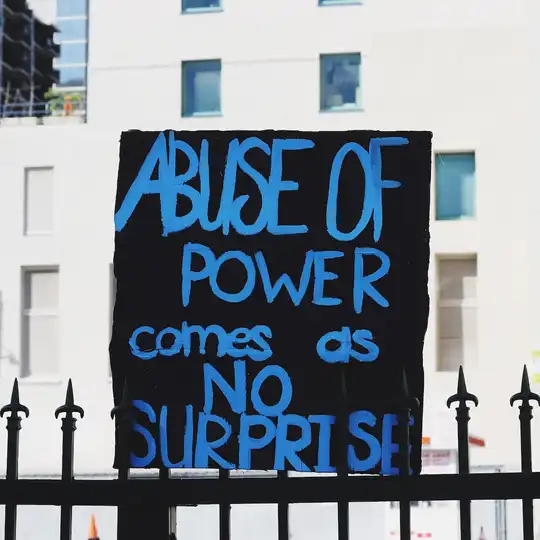 ABUSE OF
POWER
comes as
NO
SURPRISE